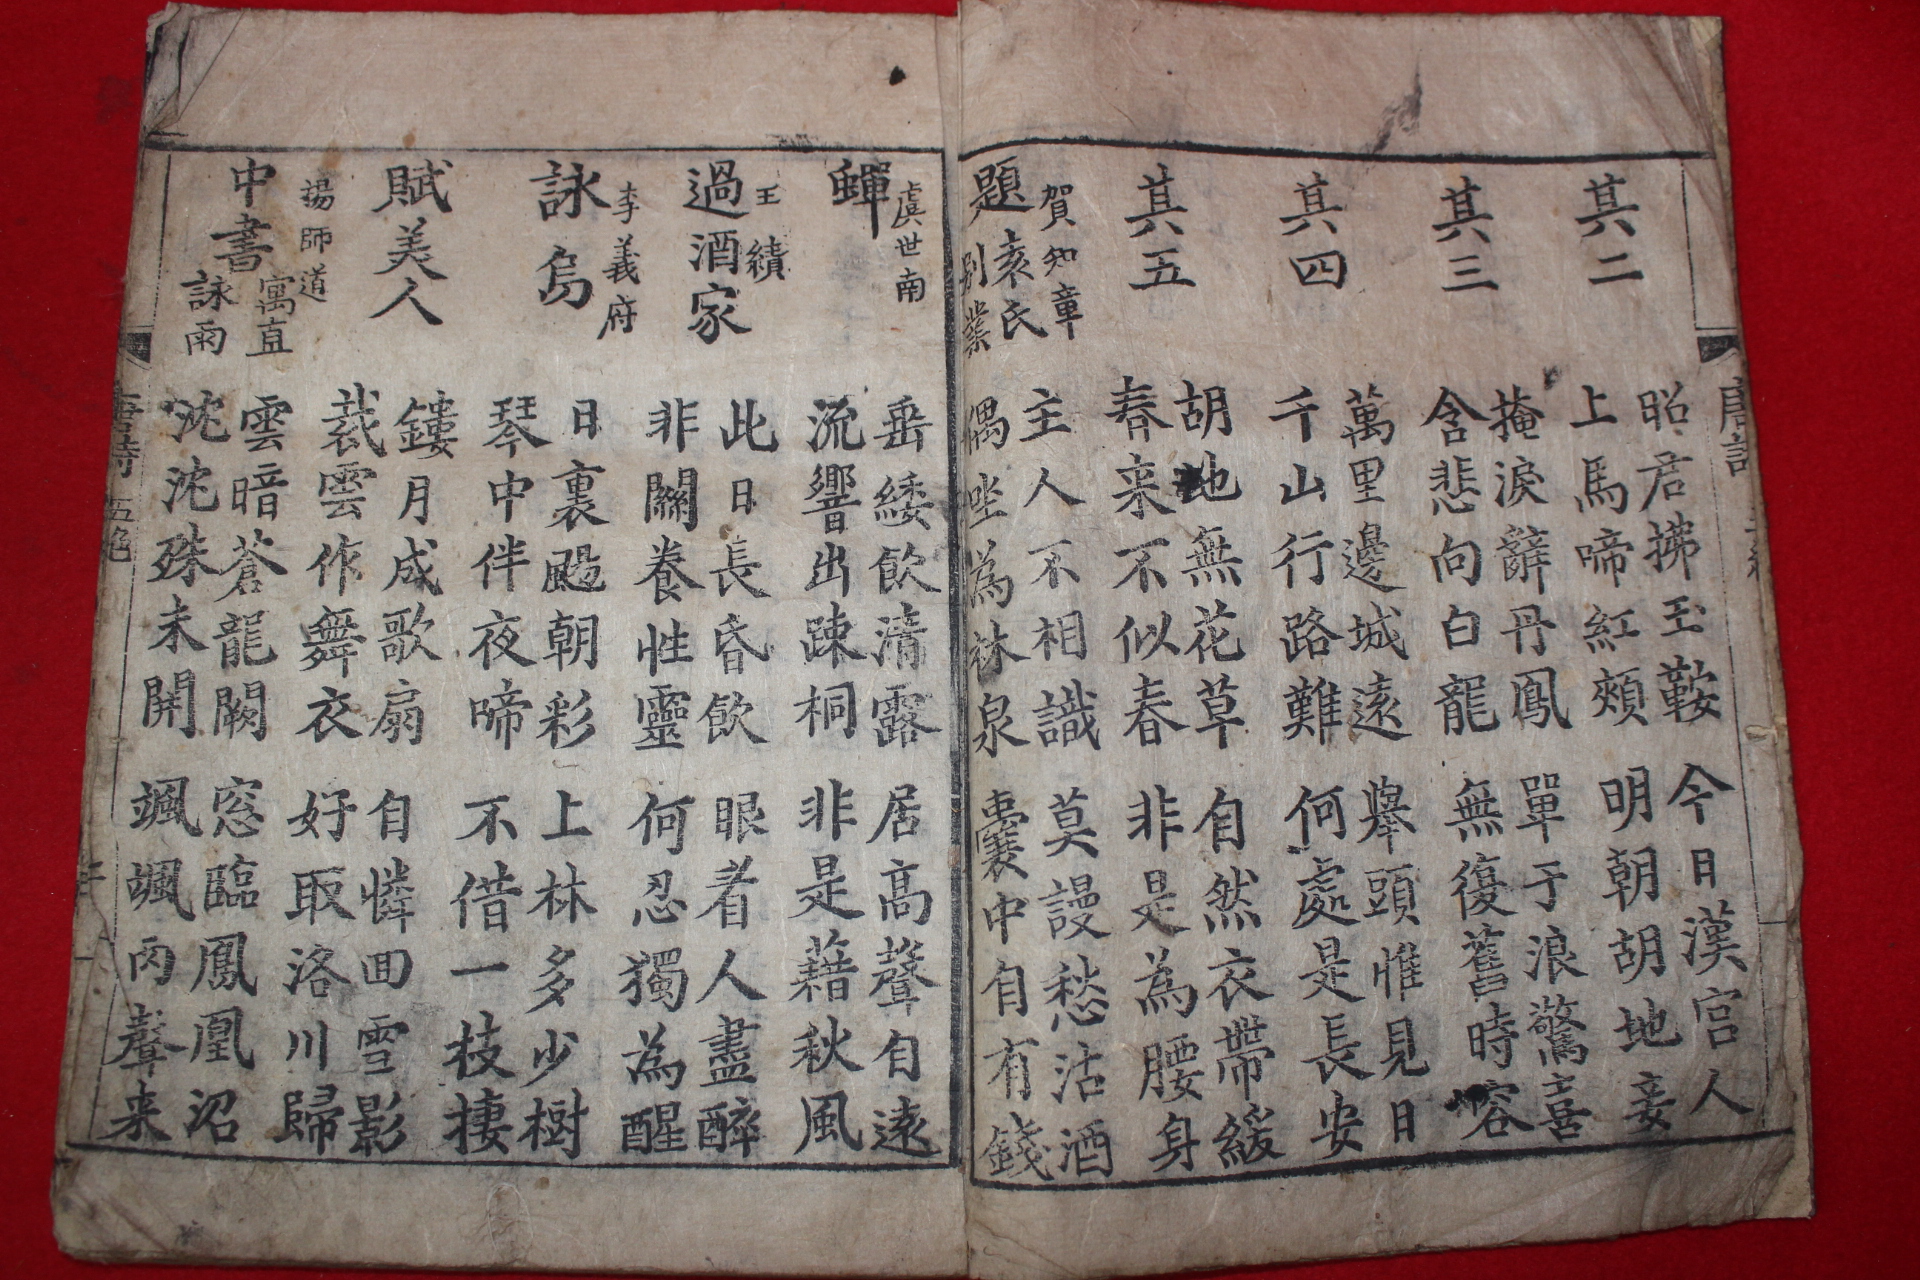 其二
昭君拂玉鞍
上馬啼紅頰
今日漢宮人
明朝胡地妾
其三
掩淚辭丹鳳
含悲向白龍
單于浪驚喜
無復舊時容
其四
萬里邊城遠
千山行路難
舉頭惟見日
何處是長安
其五
胡地無花草
春来不似春
自然衣帶緩
非是為腰身
賀知章
題袁氏別業
主人不相識
偶坐為林泉
莫謾愁沽酒
囊中自有錢
虞世南
蟬
垂緌飲清露
流響出疎桐
居高聲自遠
非是藉秋風
王績
過酒家
此日長昏飲
非關養性靈
眼看人盡醉
何忍獨為醒
李義府
詠烏
日裏颺朝彩
琴中伴夜啼
上林多少樹
不借一枝棲
賦美人
鏤月成歌扇
裁雲作舞衣
自憐回雪影
好取洛川歸
楊師道
中書寓直詠雨
雲暗蒼龍闕
沈沈殊未開
窓臨鳳凰沼
颯颯雨聲来
唐詩 五絶